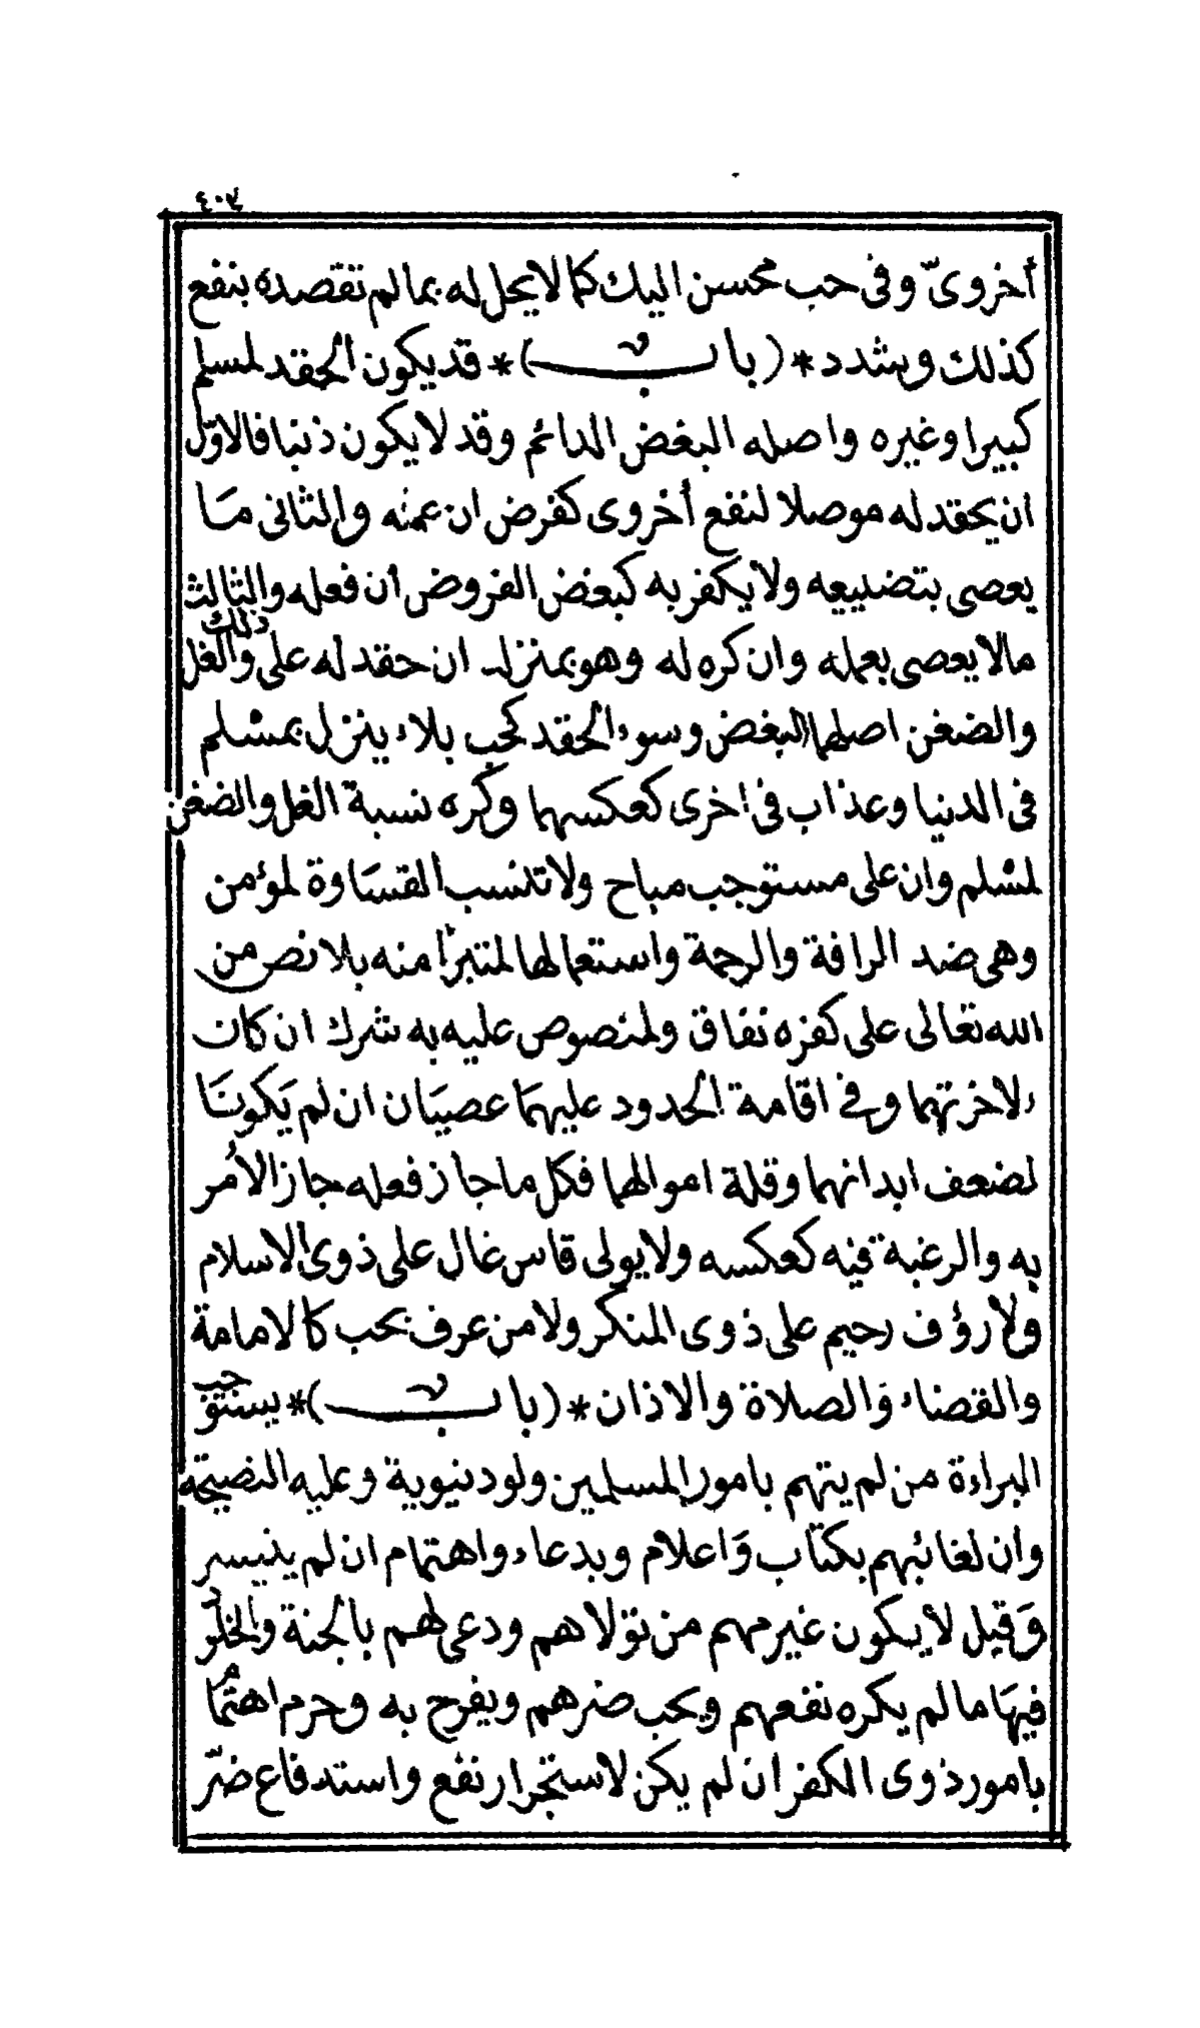 ٤٠٧
أخروىّ وفى حب محسن اليك كما لا يحل له بما لم تقصده بنفع
كذلك وشدد * ( باب ) * قد يكون الحقد لمسلم
كبيرا وغيره واصله البغض الدائم وقد لا يكون ذنبا فالاوّل
ان يحقد له موصلا لنفع أخروى كفرض ان عمنه والثانى مَا
يعصى بتضييعه ولا يكفر به كبعض الفروض أن فعله والثالث
مالا يعصى بعمله وان كره له وهو بمنزلـ ان حقد له على ذلك والغل
والضغن اصلهما البغض وسوء الحقد كحب بلاء ينزل بمسلم
فى الدنيا وعذاب فى اخرى كعكسهما وكره نسبة الغل والضغن
لمسلم وان على مستوجب مباح ولا تنسب القسَاوة لمؤمن
وهى ضد الرافة والرحمة واستعمالها لمتبرّأ منه بلا نص من
الله تعالى على كفره نفاق ولمنصوص عليه به شرك ان كان
ءلاخرتهما وفي اقامة الحدود عليهمَا عصيَان ان لم يَكونَا
لضعف ابدانهما وقلة اموالهما فكل ما جاز فعله جاز الأمر
به والرغبة فيه كعكسه ولا يولى قاس غال على ذوى الاسلام
ولا رؤف رحيم على ذوى المنكر ولا من عرف بحب كالامامة
والقضاء وَالصلاة والاذان * ( باب ) * يستوجب
البراءة من لم يتهم بامور المسلمين ولو دنيوية وعليه النصيحة
وان لغائبهم بكتاب وَاعلام وبدعاء واهتمام ان لم يتيسر
وَقيل لا يكون غير مهم من تولاهم ودعى لهم بالجنة والخلد
فيهَا مالم يكره نفعهم ويحب ضرهم ويفرح به وحرم اهتمام
بامور ذوى الكفر ان لم يكن لاستجرار نفع واستدفاع ضرّ